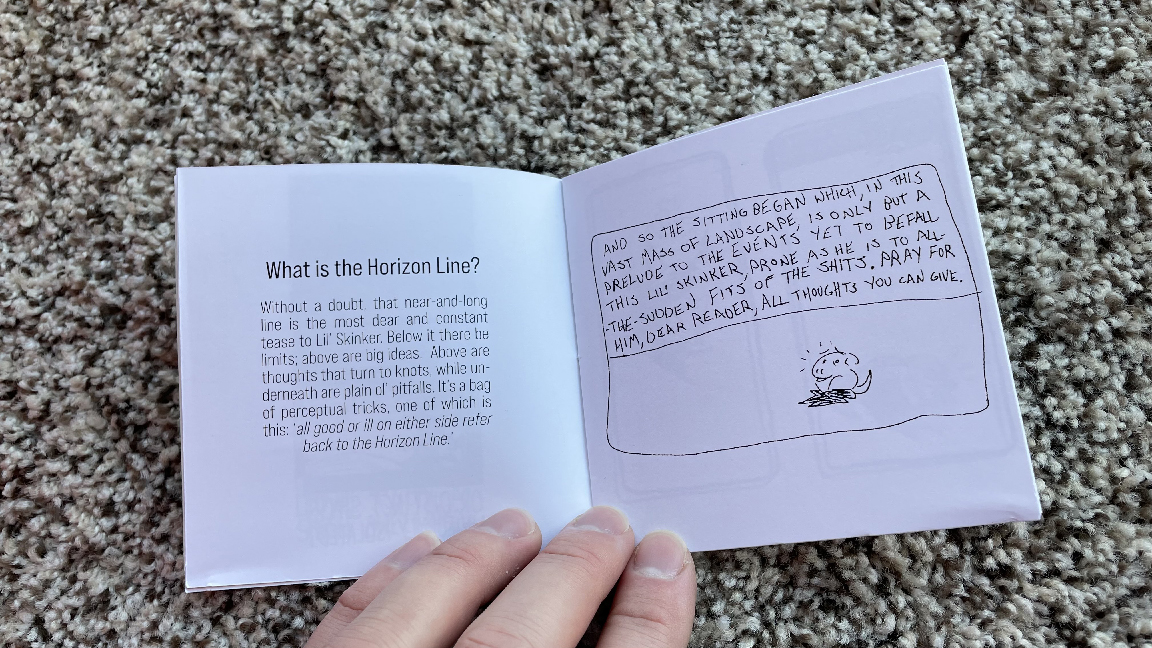 What is the Horizon Line?
Without a doubt, that near-and-long
line is the most dear and constant
tease to Lil' Skinker. Below it there be
limits; above are big ideas. Above are
thoughts that turn to knots, while un-
derneath are plain ol' pitfalls. It's a bag
of perceptual tricks, one of which is
this: 'all good or ill on either side refer
back to the Horizon Line.'
AND SO THE SITTING BEGAN WHICH, IN THIS
VAST MASS OF LANDSCAPE, IS ONLY BUT A
PRELUDE TO THE EVENTS YET TO BEFALL
THIS LIL' SKINKER, PRONE AS HE IS TO ALL-
-THE-SUDDEN FITS OF THE SHITS. PRAY FOR
HIM, DEAR READER, ALL THOUGHTS YOU CAN GIVE.